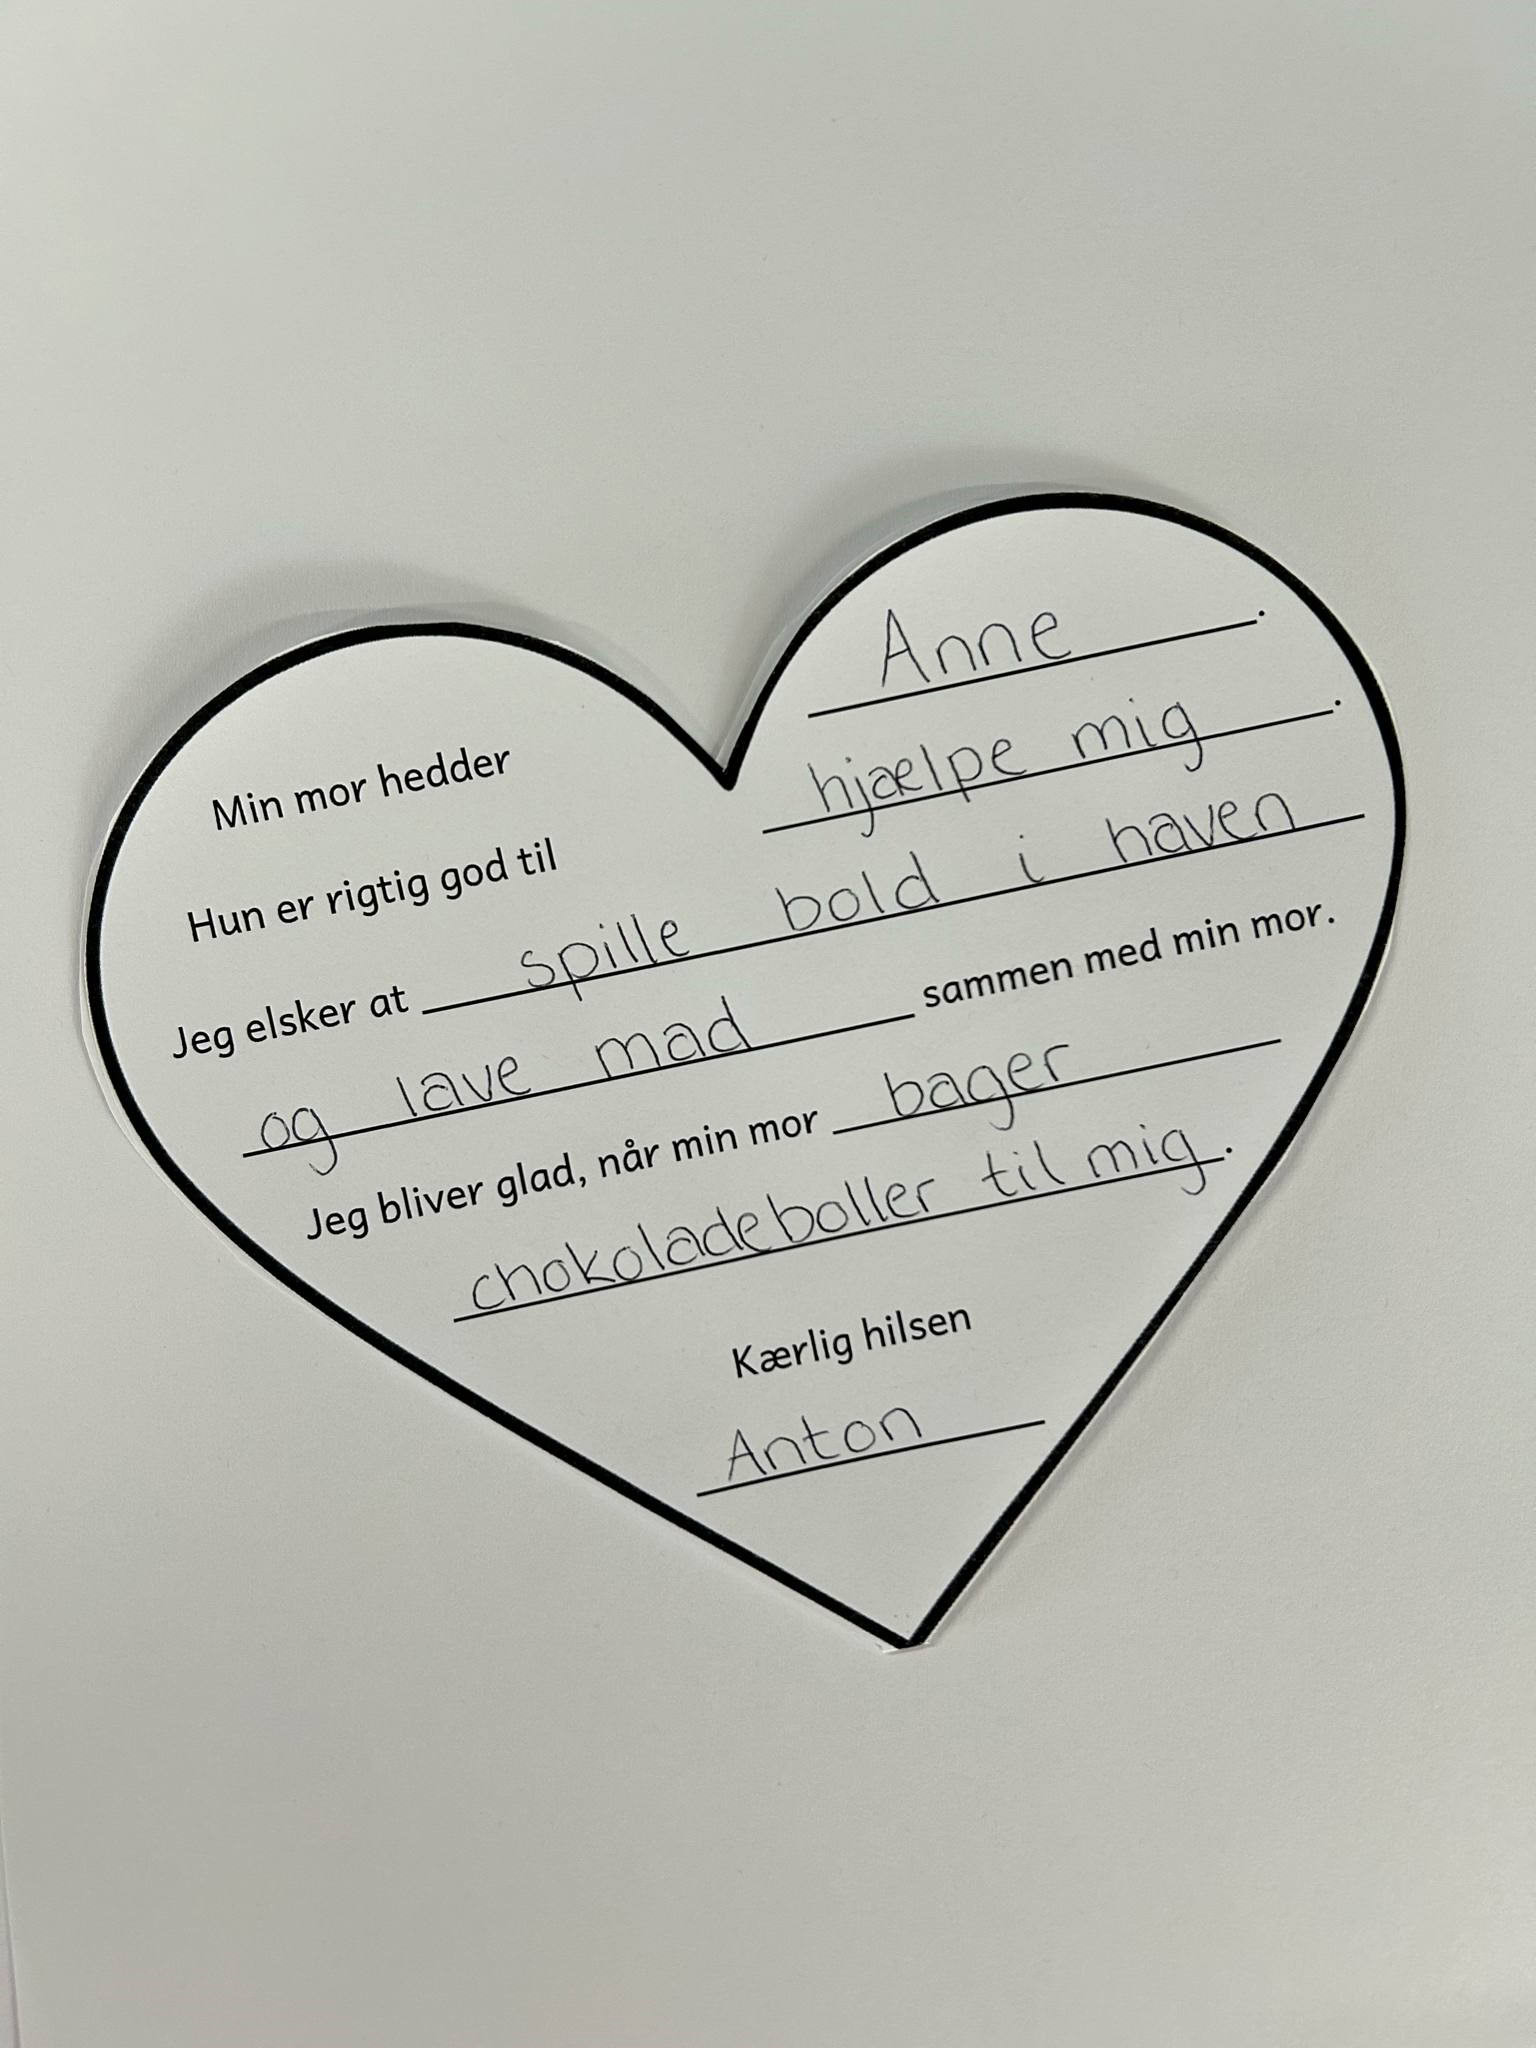 Min mor hedder Anne.
Hun er rigtig god til hjælpe mig.
Jeg elsker at spille bold i haven
og lave mad sammen med min mor.
Jeg bliver glad, når min mor bager
chokoladeboller til mig.
Kærlig hilsen
Anton